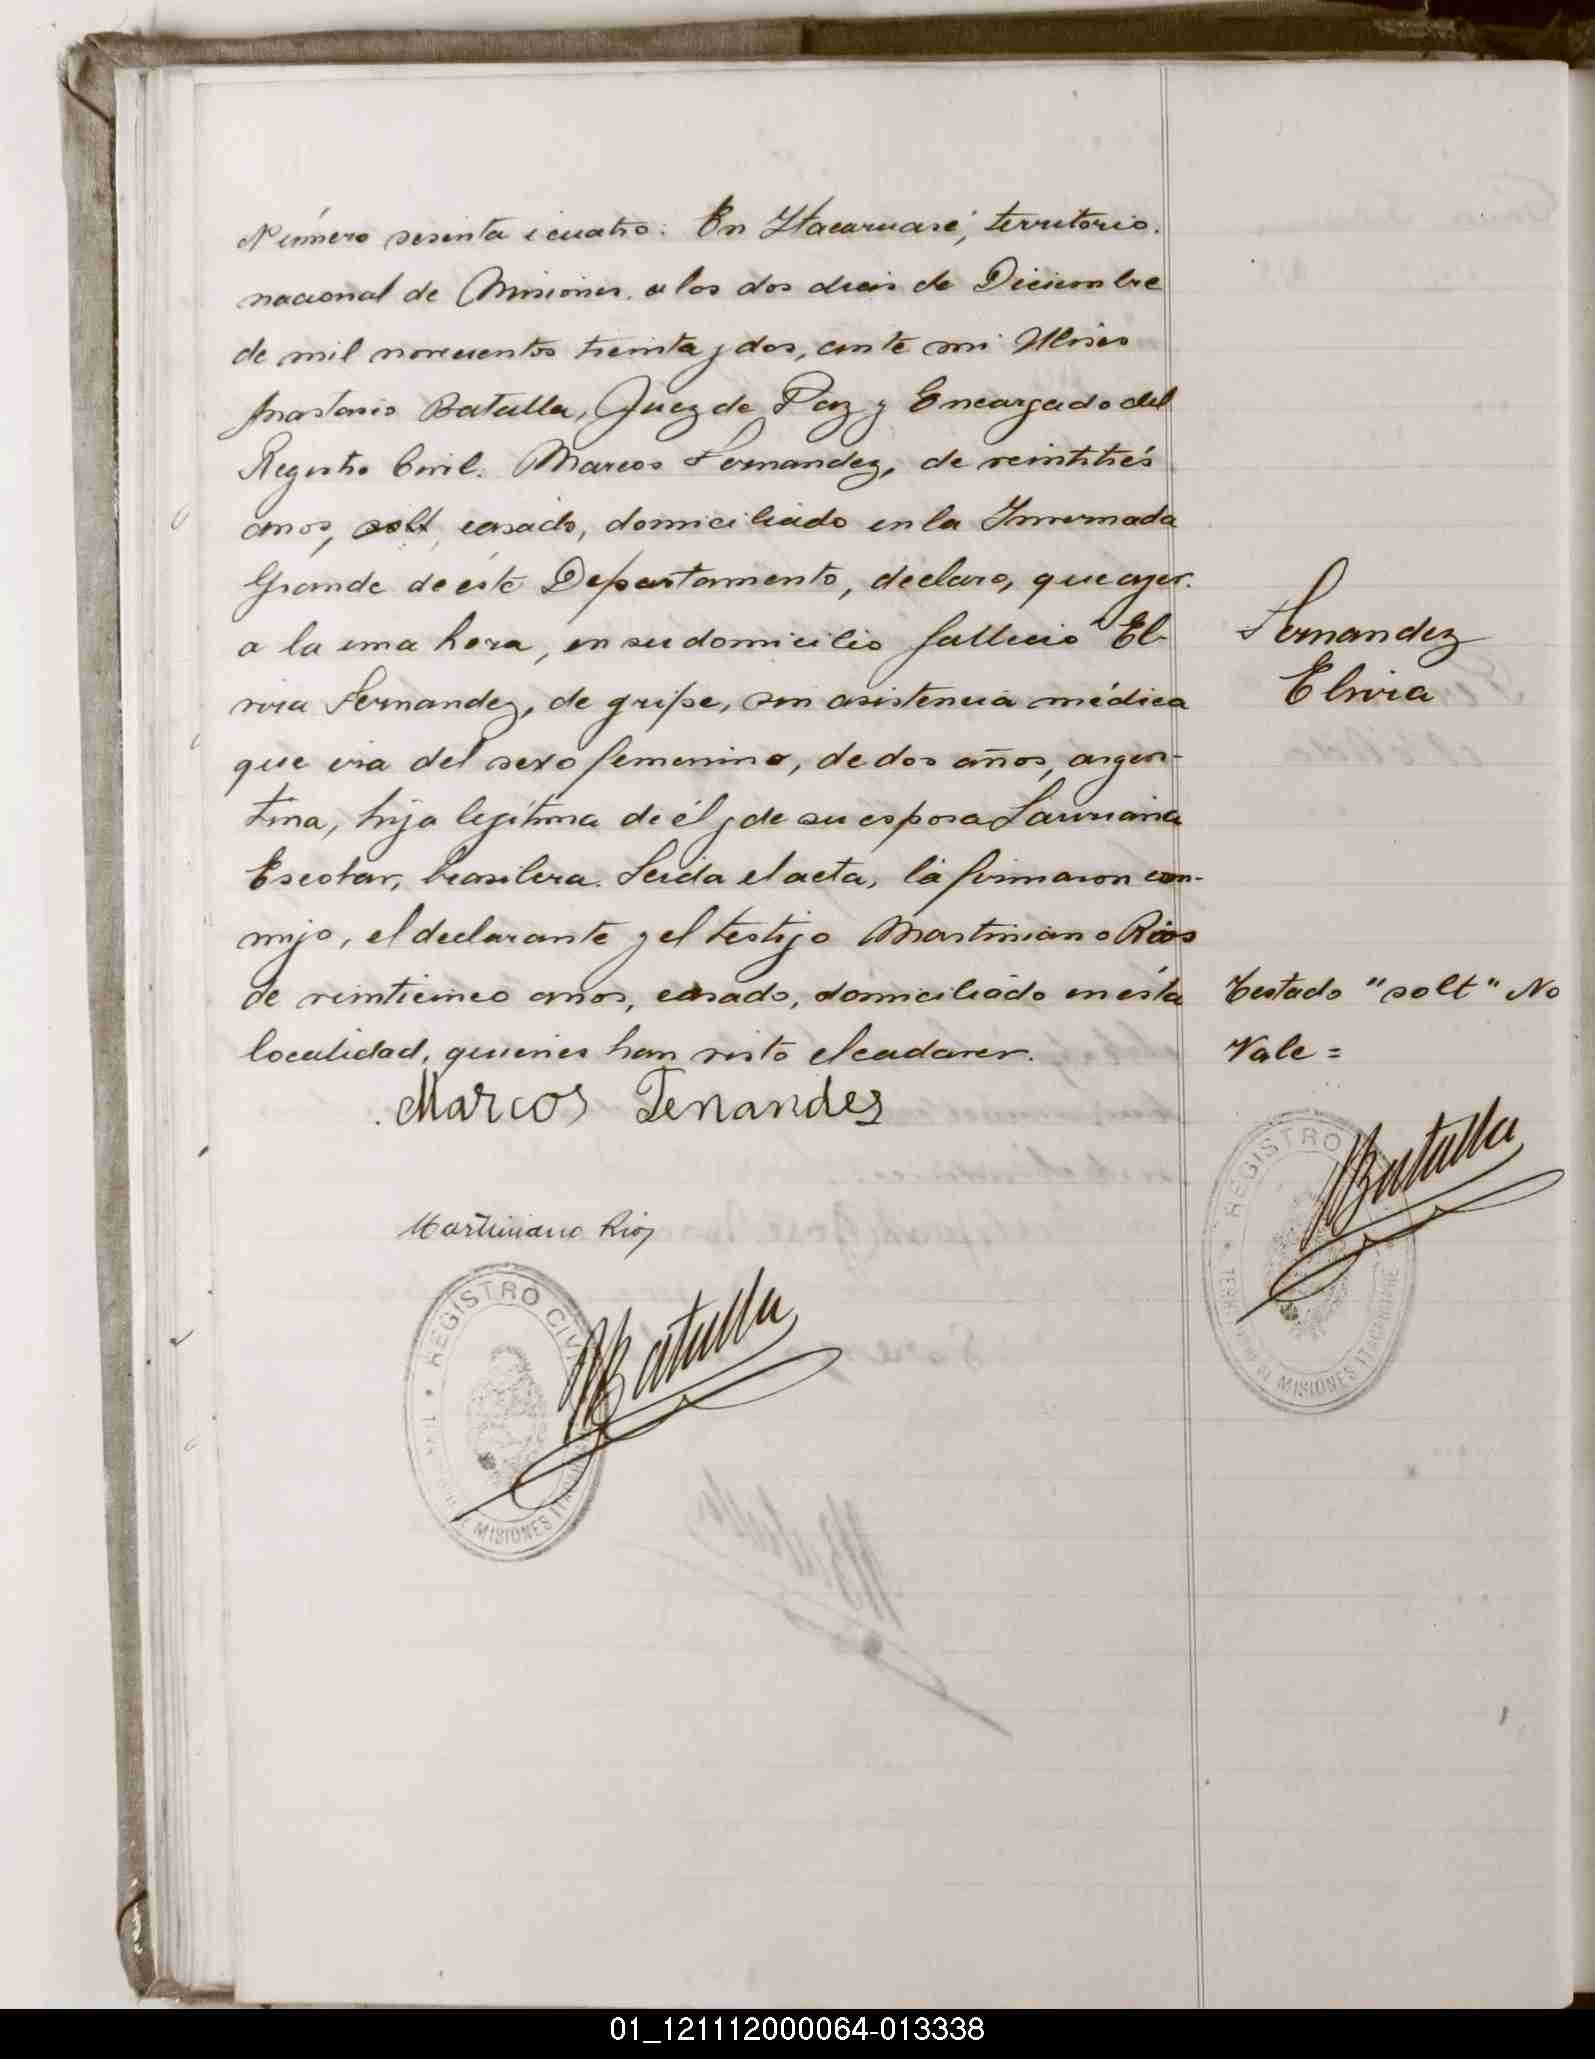 Número sesenta i cuatro: En Itacaruaré, territorio.
nacional de Misiones, a los dos dias de Diciembre
de mil novecientos treinta y dos, ante mi Ulises
Anastasio Batalla, Juez de Paz y Encargado del
Registro Civil. Marcos Fernandez, de veintitrés
años, solt, casado, domiciliado en la Invernada
Grande de éste Departamento, declaro, que ayer.
a la una hora, en su domicilio falleció El-
vira Fernandez, de gripe, sin asistencia médica
que era del sexo femenino, de dos años, argen-
Fernandez
Elvira
tina, hija legítima de él y de su esposa Lauriana
Escobar, brasilera. Leida el acta, la firmaron con-
migo, el declarante y el testigo Martiniano Rios
de veinticinco años, casado, domiciliado en ésta
localidad, quienes han visto el cadaver.
Testado "solt" No
Vale =
Marcos Fenandes
Martiniano Rios
Batalla
REGISTRO CIVIL
MISIONES
Batalla
REGISTRO
MISIONES ITACARUARE
01_121112000064-013338